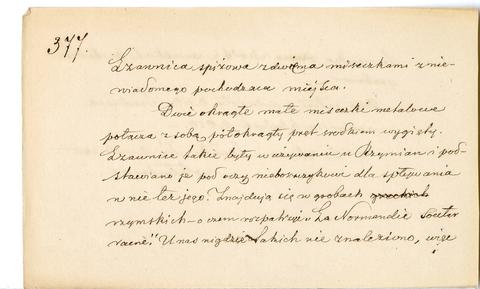 377.
Łzawnica spiżowa z dwiema miseczkami z nie-
wiadomego pochodząca miejsca.
Dwie okrągłe małe miseczki metalowe
połącza z sobą półokrągły pręt środkiem wygięty.
Łzawnice takie były w używaniu u Rzymian i pod-
stawiano je pod oczy nieboszczykowi dla spływania
w nie łez jego. Znajdują się w grobach greckich
rzymskich – o czem rozpatruje „La Normandie souter
raine". U nas nigdzie takich nie znaleziono, więc